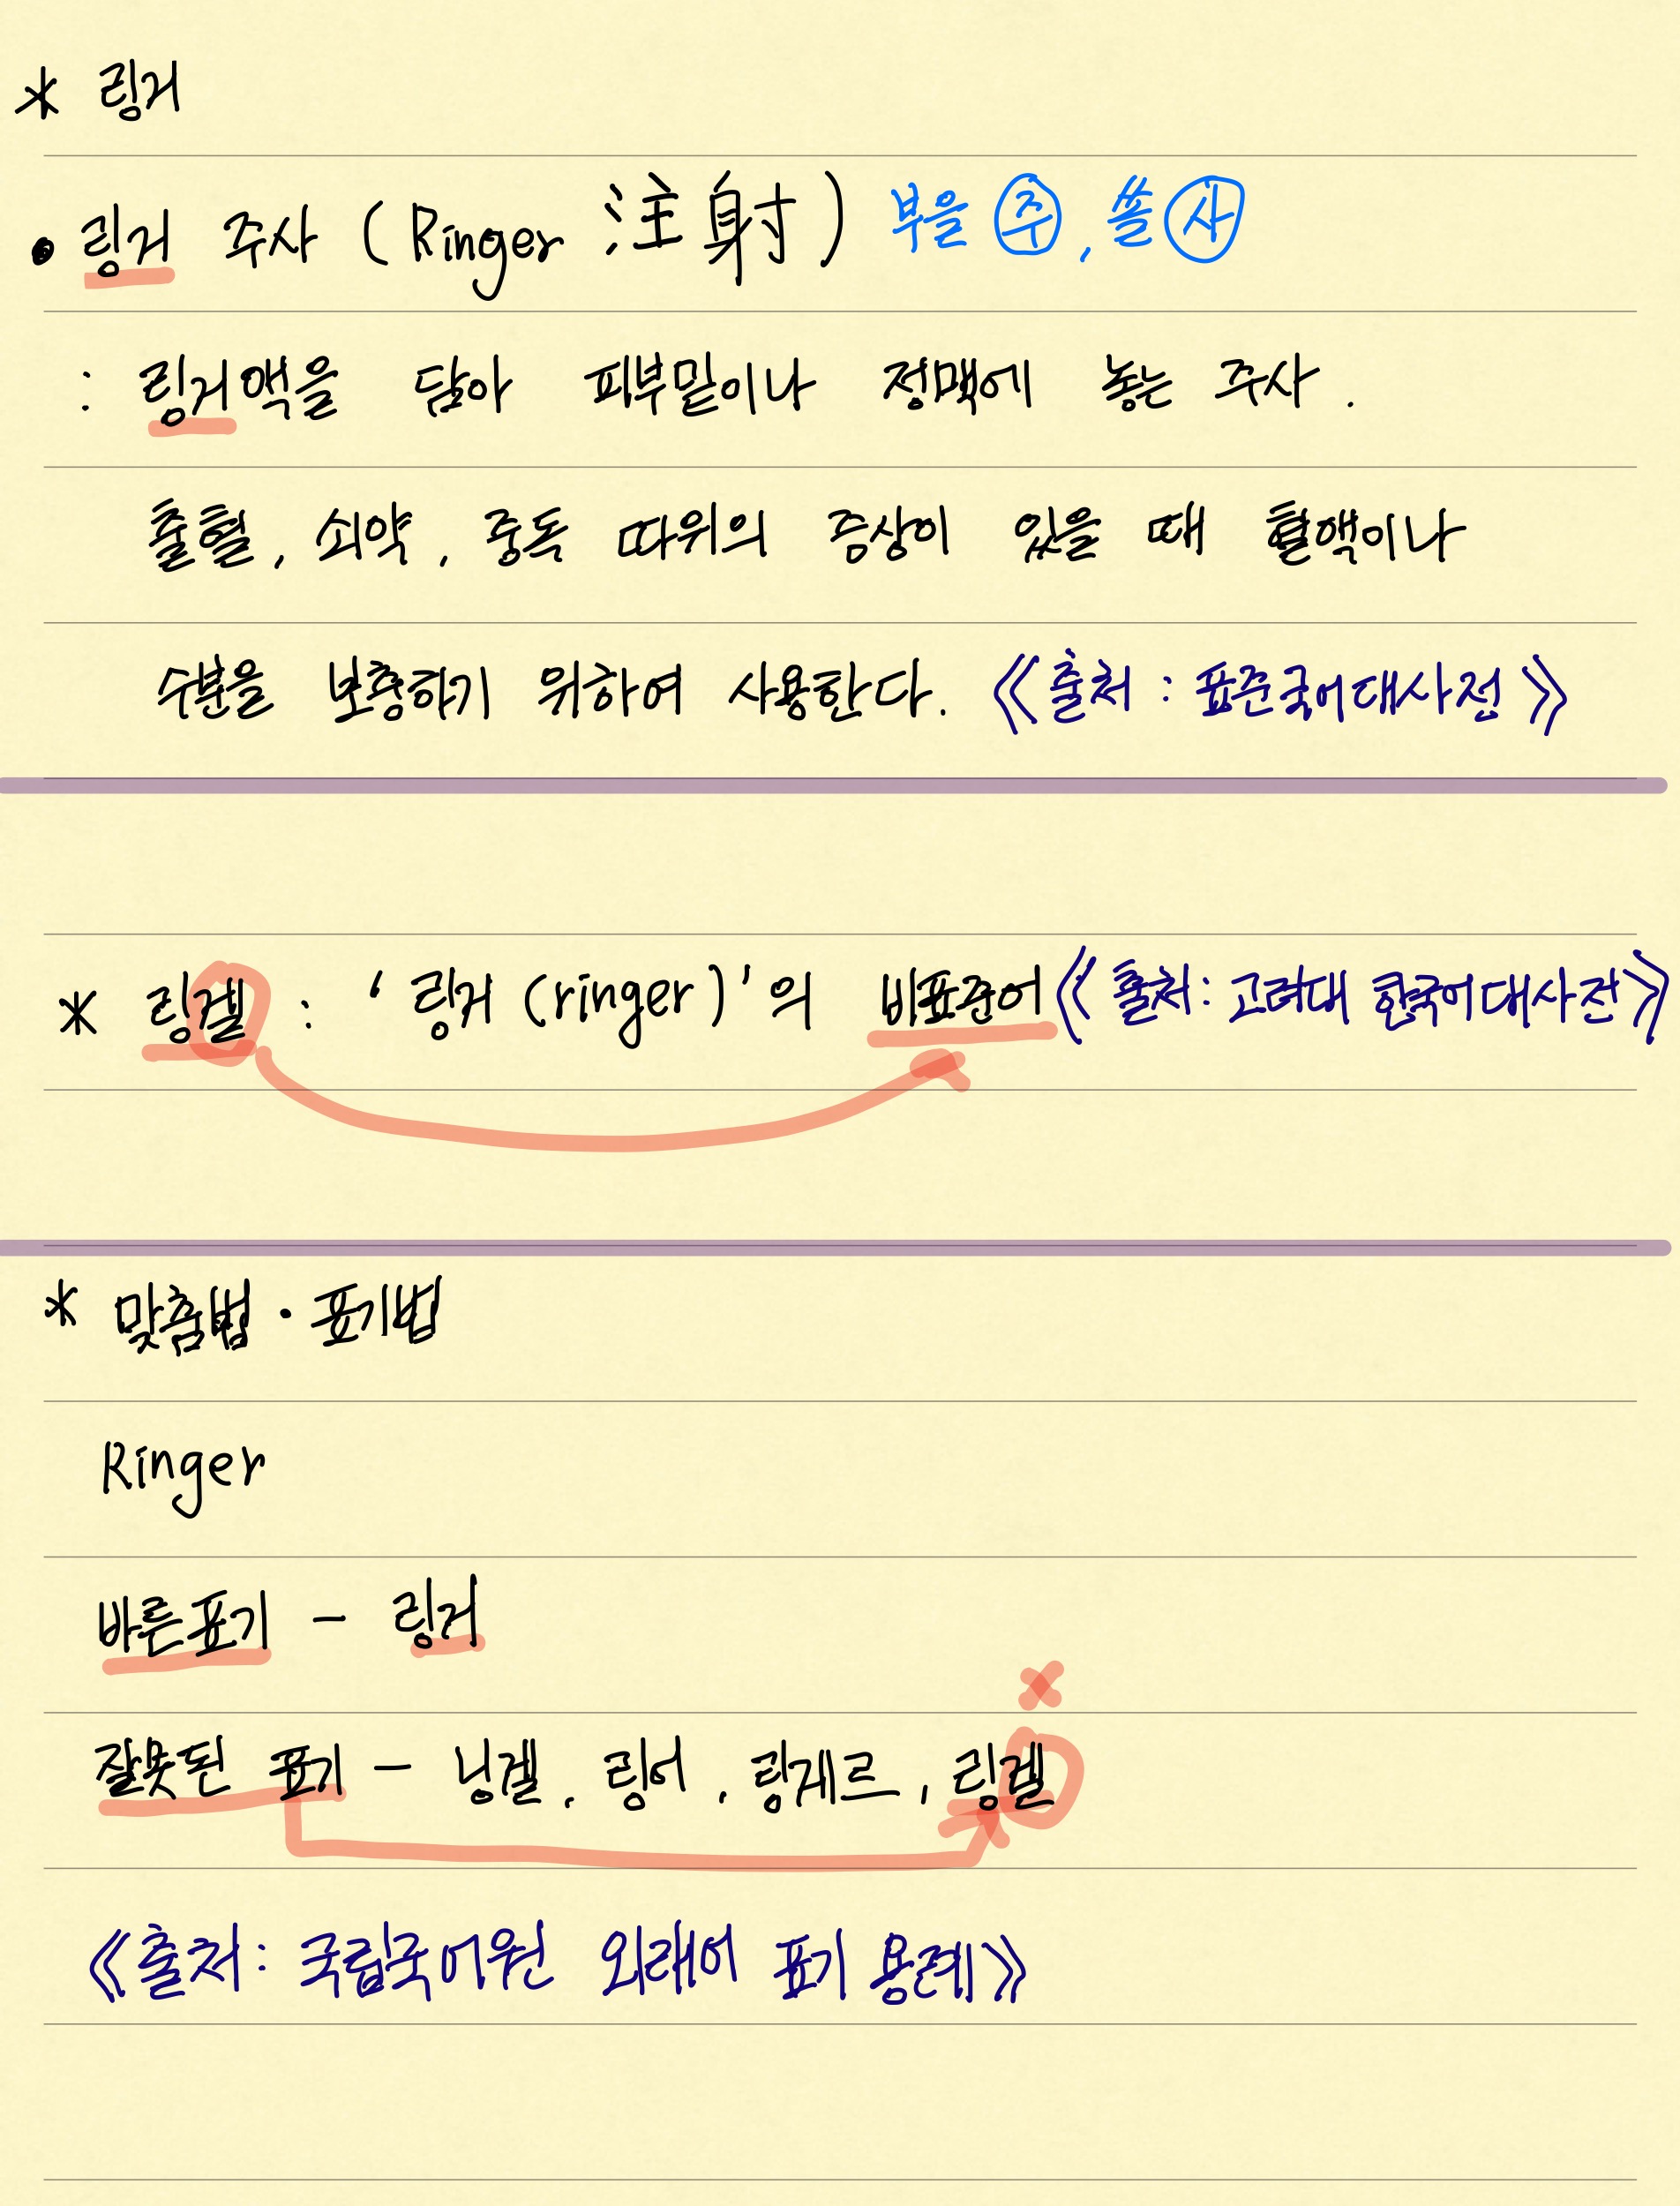 * 링거
• 링거 주사 (Ringer 注射) 부을 주, 쏠 사
: 링거액을 담아 피부밑이나 정맥에 놓는 주사.
출혈, 쇠약, 중독 따위의 증상이 있을 때 혈액이나
수분을 보충하기 위하여 사용한다. 《출처 : 표준국어대사전》
* 링겔 : ‘링거 (ringer)’의 비표준어 《출처: 고려대 한국어대사전》
* 맞춤법·표기법
Ringer
바른표기 - 링거
잘못된 표기 - 닝겔, 링어, 링게르, 링겔
《출처: 국립국어원 외래어 표기 용례》